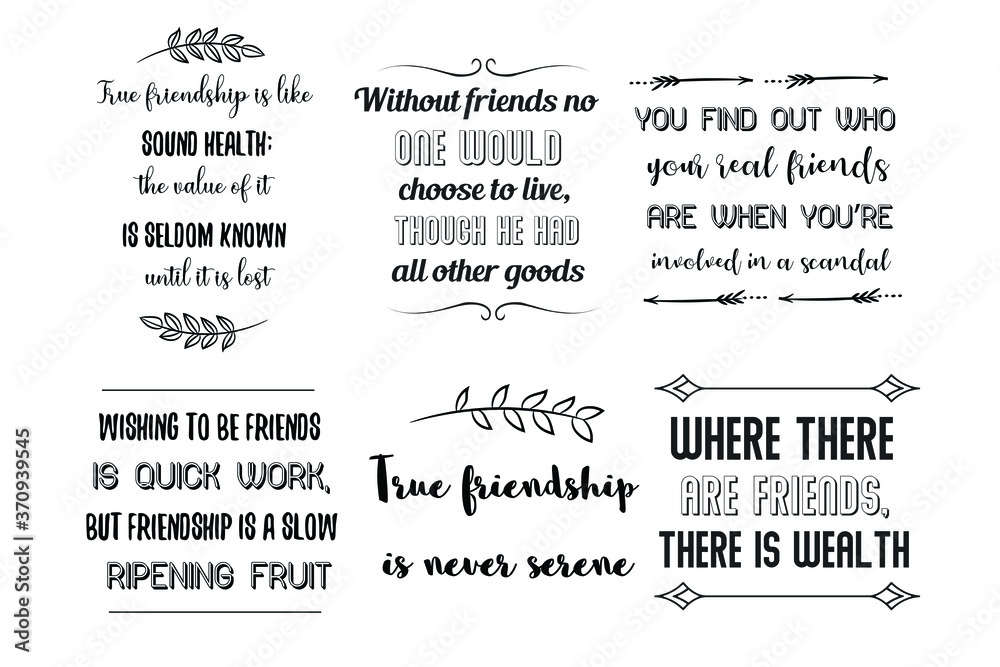 True friendship is like
SOUND HEALTH;
the value of it
IS SELDOM KNOWN
until it is lost
Without friends no
ONE WOULD
choose to live,
THOUGH HE HAD
all other goods
YOU FIND OUT WHO
your real friends
ARE WHEN YOU'RE
involved in a scandal
WISHING TO BE FRIENDS
IS QUICK WORK,
BUT FRIENDSHIP IS A SLOW
RIPENING FRUIT
True friendship
is never serene
WHERE THERE
ARE FRIENDS,
THERE IS WEALTH
Adobe Stock | #370939545
Adobe Stock